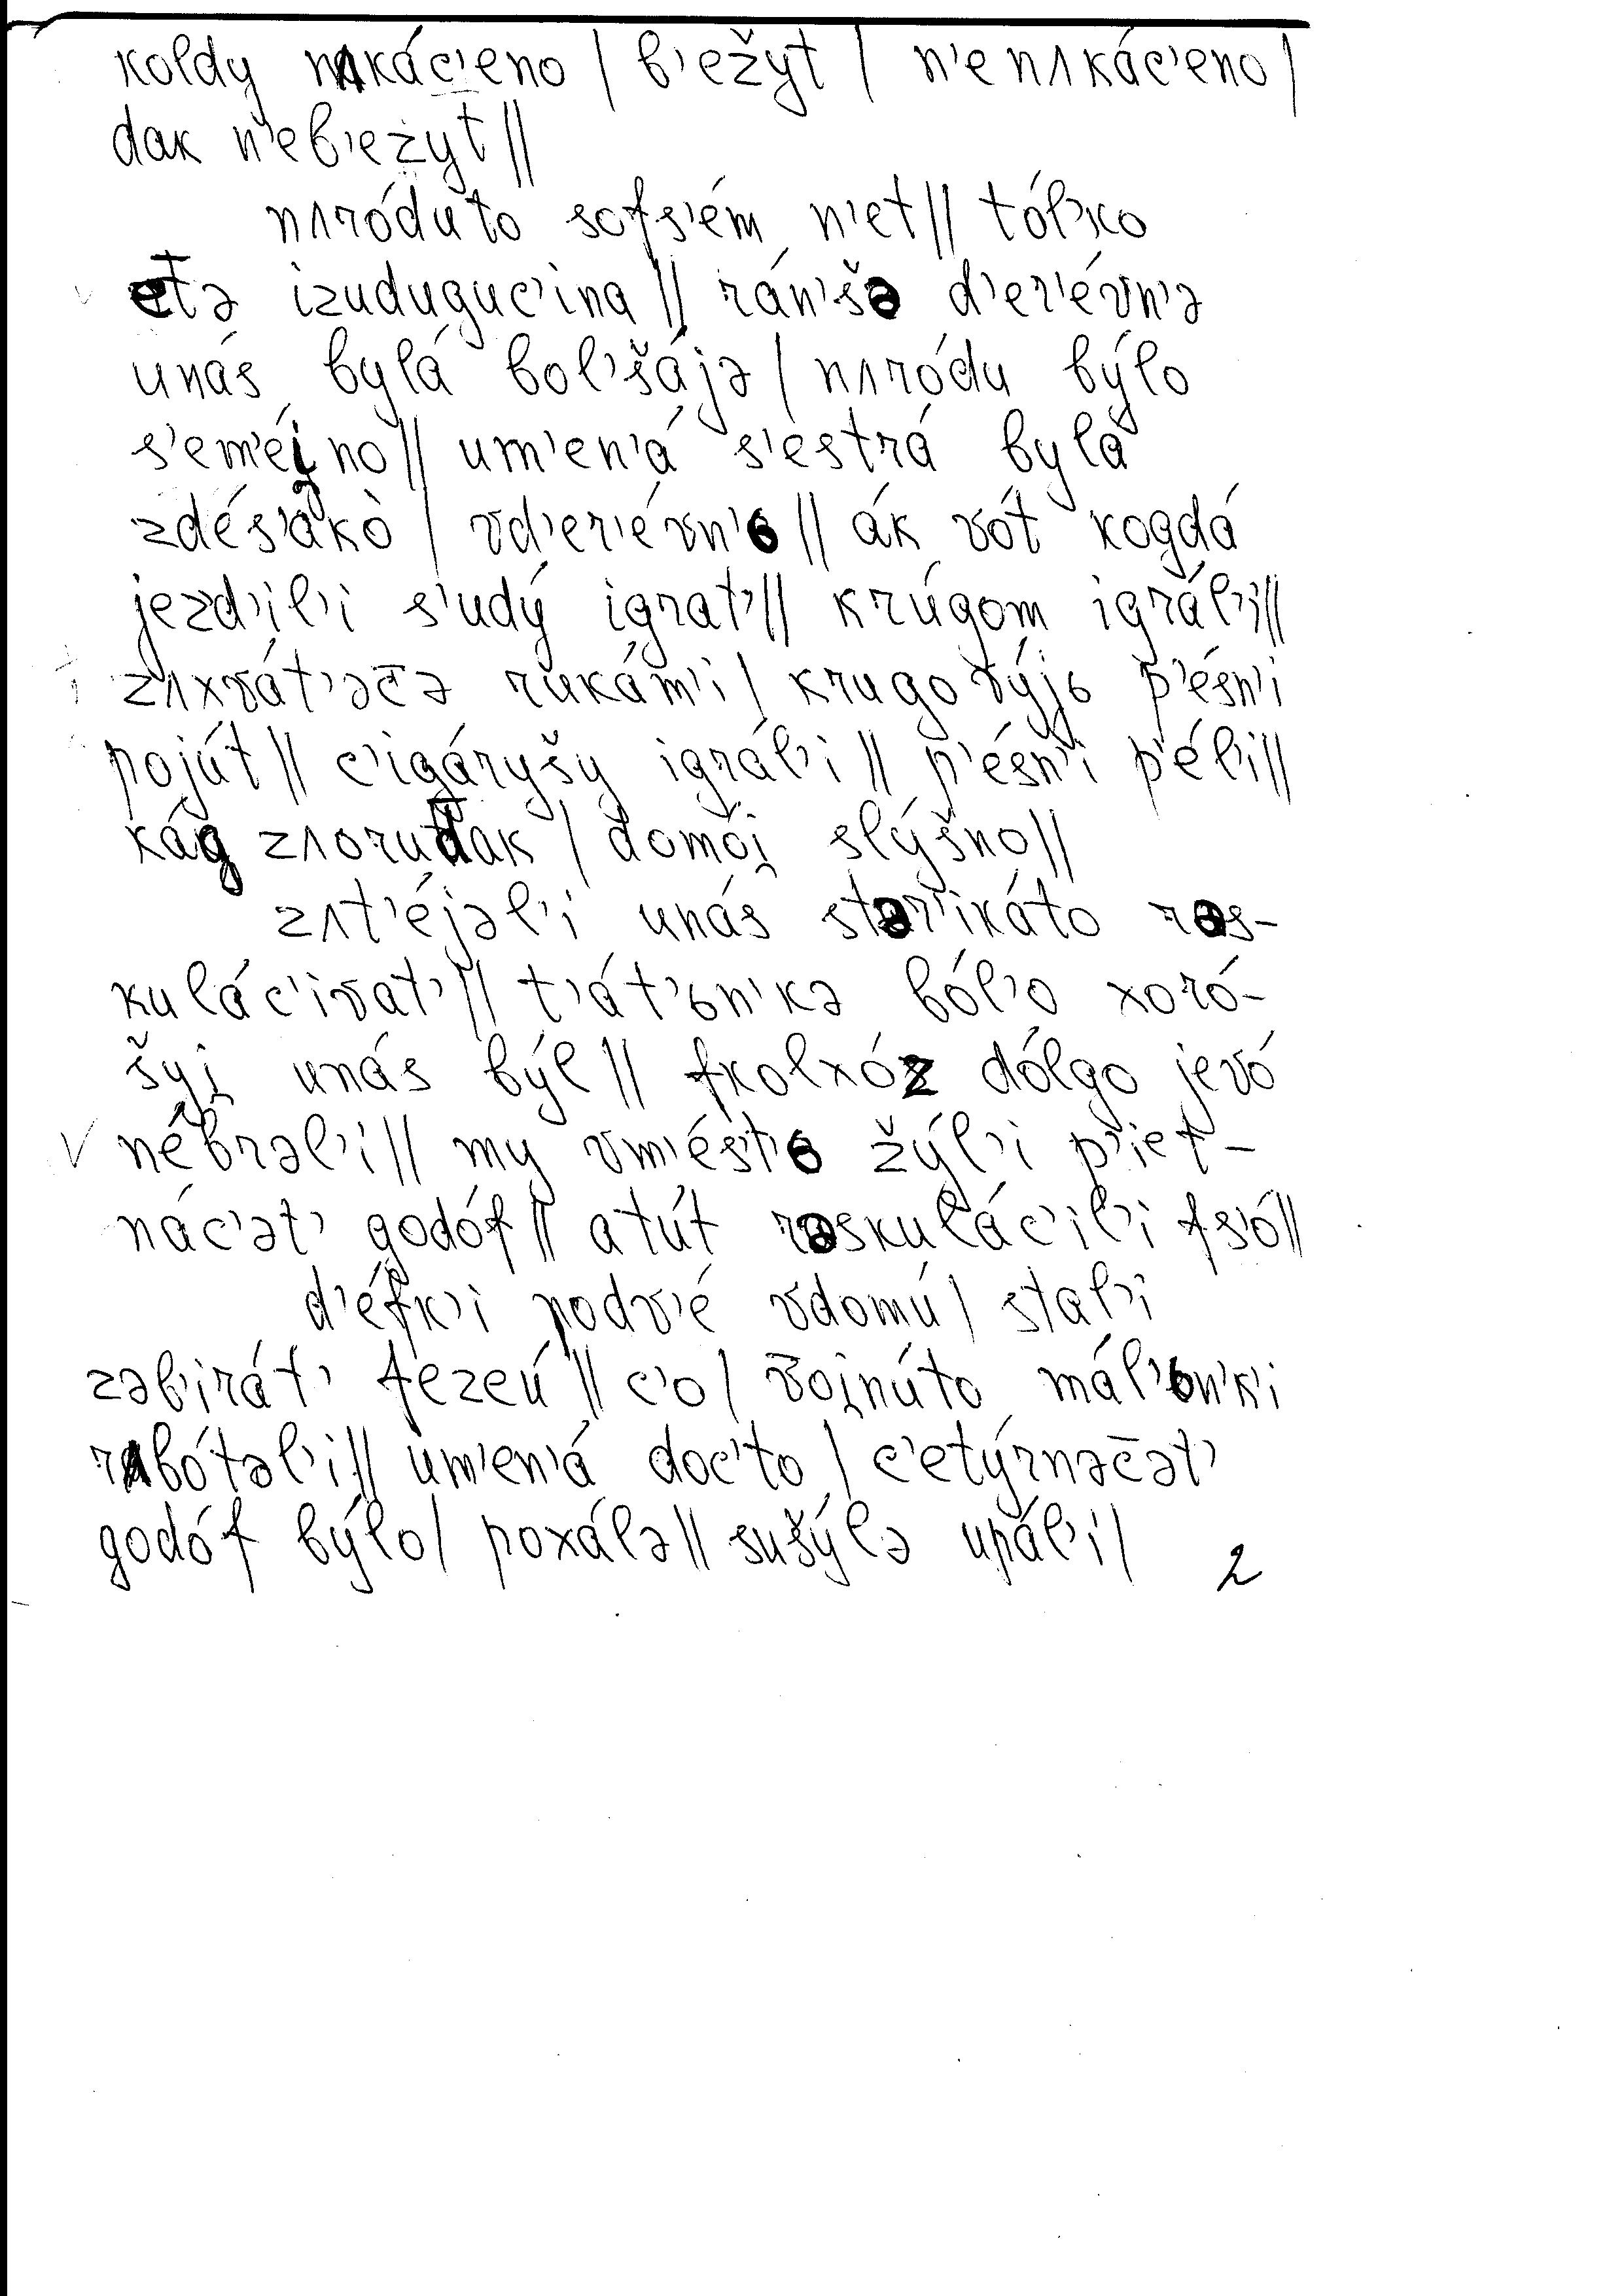 koldy nʌkác’eno | b’ežyt | n’e nʌkác’eno |
dak n’eb’ežyt ||
nʌródu to sofs’ém n’et || tól’ko
etə izuduguc’ina || rán’šə d’er’évn’ə
unás bylá bol’šájə | nʌródu býlo
s’em’éi̯no || um’en’á s’estrá bylá
zdés’akò | vd’er’évn’ь || ák vót kogdá
jezd’il’i s’udý igrat’ || krúgom igrál’i ||
zʌxvát’əc̄ə rukám’i | krugovýjь p’ésn’i
pojút || c’igáryšy igrál’i || p’ésn’i p’él’i ||
kág zʌorut̄ak | domói̯ slýšno ||
zʌt’éjəl’i unás stər’ikáto rəs-
kulác’ivat’ || t’át’ьn’kə ból’o xoró-
šyi̯ unás býl || fkolxóz dólgo jevó
nébrəl’i || my vm’és’t’ь žýl’i p’iet-
nác’ət’ godóf || atút rəskulác’il’i fs’ó ||
d’éfk’i podv’é vdomú | stal’i
zəb’irát’ fezeú || c’o | v̄oi̯núto mál’ьn’k’i
rʌbótəl’i || um’en’á doc’to | c’etýrnəc̄ət’
godóf býlo | poxálə || sušýlə upál’i |
2